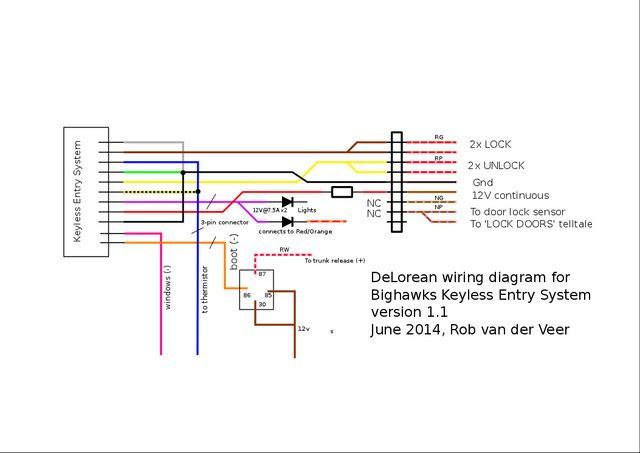 Keyless Entry System
RG
2x LOCK
RP
2x UNLOCK
Gnd
12V continuous
NG
NC
NC
NP
To door lock sensor
To 'LOCK DOORS' telltale
12V@7.5A x2
Lights
3-pin connector
connects to Red/Orange
boot (-)
RW
To trunk release (+)
windows (-)
to thermistor
87
86
85
30
12v
s
DeLorean wiring diagram for
Bighawks Keyless Entry System
version 1.1
June 2014, Rob van der Veer